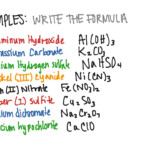 MPLES: WRITE THE FORMULA
minum Hydroxide Al(OH)3
assium Carbonate K2CO3
ium Hydrogen sulfate NaHSO4
kel (III) cyanide Ni(CN)3
n (II) Nitrate Fe(NO3)2
per (I) Sulfite Cu2SO3
ium dichromate Na2Cr2O7
cium hypochlorite CaClO